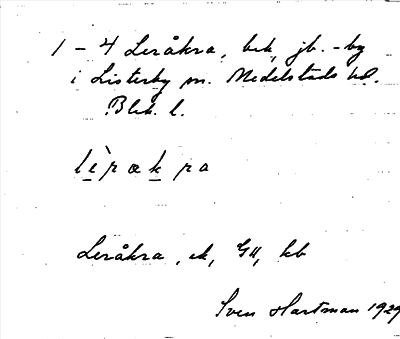 1 – 4 Leråkra, bek, jb. -by
i Listerby sn. Medelstads hd.
Blek. l.
lèrakra
Leråkra, ek, GU, kb
Sven Hartman 1929